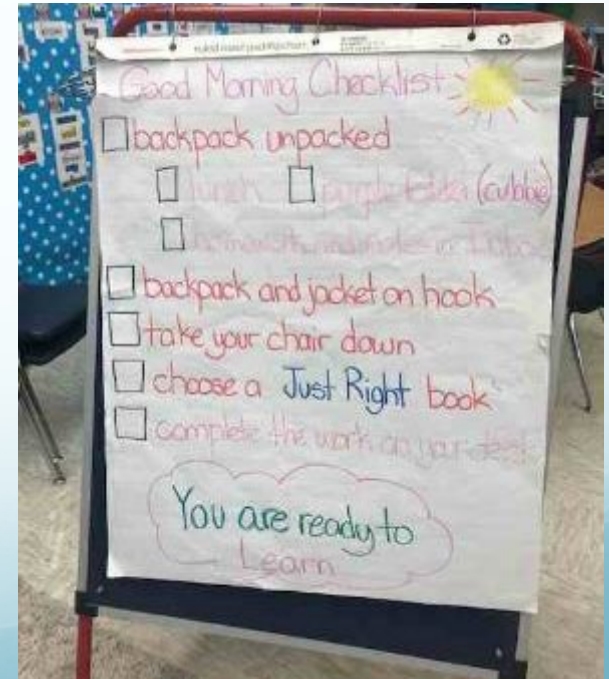 Good Morning Checklist
backpack unpacked
lunch purple folder (cubbie)
homework and notes in
backpack and jacket on hook
take your chair down
choose a Just Right book
complete the work on your desk
You are ready to
Learn